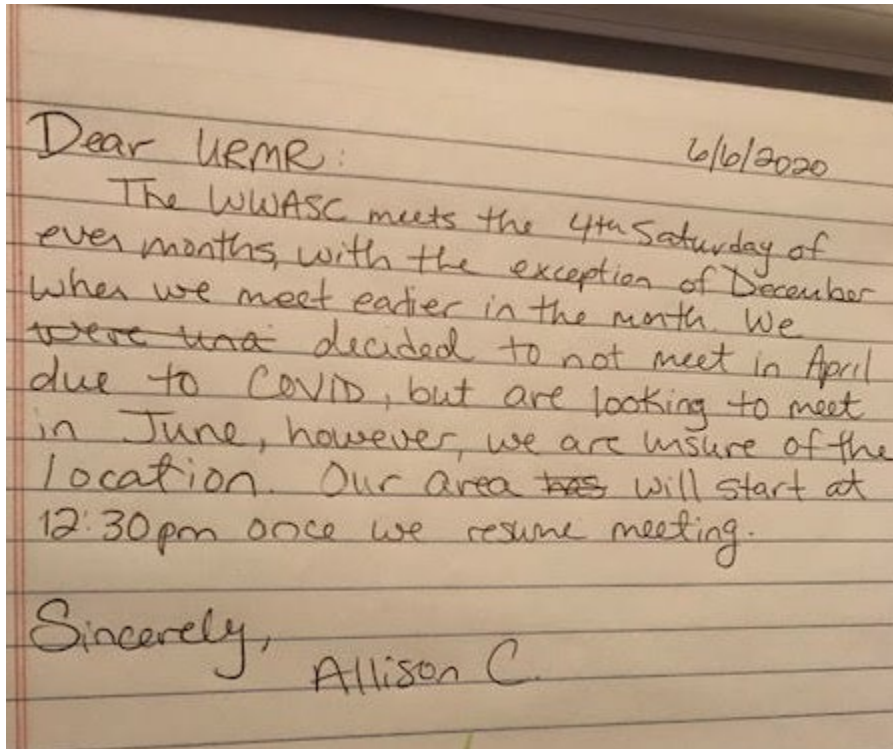 Dear URMR: 6/6/2020
The WWASC meets the 4th Saturday of
even months, with the exception of December
when we meet earlier in the month. We
were una decided to not meet in April
due to COVID, but are looking to meet
in June, however, we are unsure of the
location. Our area has will start at
12:30pm once we resume meeting.
Sincerely,
Allison C.